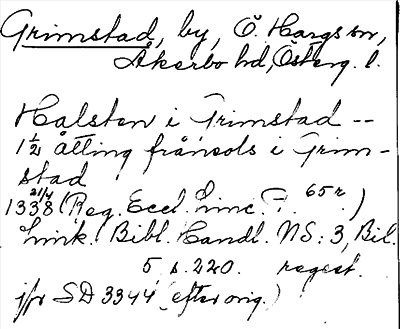 Grimstad, by, Ö. Hargs sn,
Åkerbo hd, Österg. l.
Halsten i Grimstad --
1½ åtting frånsols i Grim-
stad
21/4
1338 (Reg. Eccl. Linc. F. 65r.)
Link. Bibl. Handl. NS: 3, Bil.
5 s. 220. regest.
jfr SD 3344 (efter orig.)